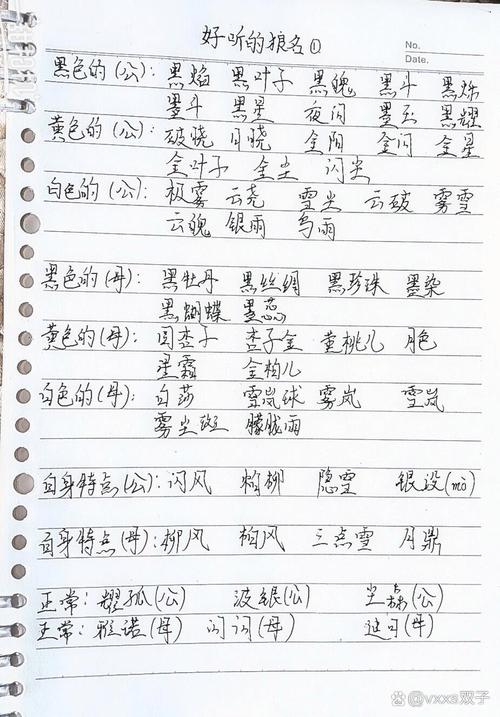 好听的狼名①
No.
Date.
黑色的(公): 黑焰 黑叶子 黑魄 黑斗 黑烁
墨斗 黑星 夜闪 墨云 黑耀
黄色的(公): 破晓 月晓 金阳 金闪 金星
金叶子 金尘 闪尘
白色的(公): 极雾 云尧 雪尘 云破 雾雪
云魄 银雨 乌雨
黑色的(母): 黑牡丹 黑丝绸 黑珍珠 墨染
黑蝴蝶 墨蕊
黄色的(母): 圆杏子 杏子金 黄桃儿 月色
星霜 金柏儿
白色的(母): 白莎 雪岚绒 雾岚 雪岚
雾尘斑 朦胧雨
自身特点(公): 闪风 柏柳 隐雪 银没(mò)
自身特点(母): 柳风 柏风 三点雪 月鼎
正常: 耀孤(公) 波银(公) 尘森(公)
正常: 雅诺(母) 闪闪(母) (母)
@vxxs双子